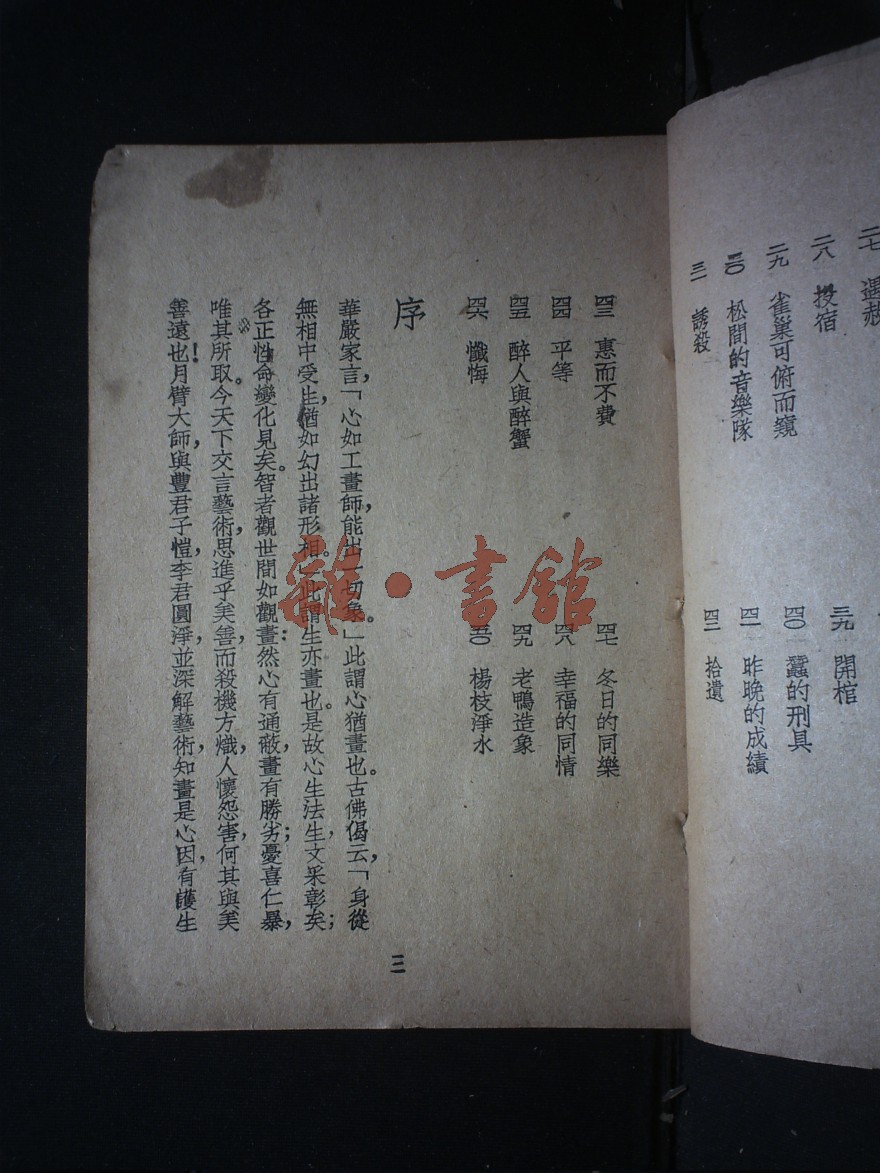 二七
二八 投宿
二九 雀巢可俯而窺
三〇 松間的音樂隊
三一 誘殺
三九 開棺
四〇 蠶的刑具
四一 昨晚的成績
四二 拾遺
四三 惠而不費
四四 平等
四五 醉人與醉蟹
四六 懺悔
四七 冬日的同樂
四八 幸福的同情
四九 老鴨造象
五〇 楊枝淨水
序
華嚴家言，「心如工畫師，能出一切象。」此謂心猶畫也。古佛偈云，「身從
無相中受生，猶如幻出諸形相。」此謂生亦畫也。是故心生法生，文采彰矣；
各正性命，變化見矣。智者觀世間，如觀畫然：心有通蔽，畫有勝劣；憂喜仁暴，
唯其所取。今天下交言藝術，思進乎美善，而殺機方熾，人懷怨害，何其與美
善遠也！月臂大師，與豐君子愷，李君圓淨，並深解藝術，知畫是心，因有護生
三
龍·書館